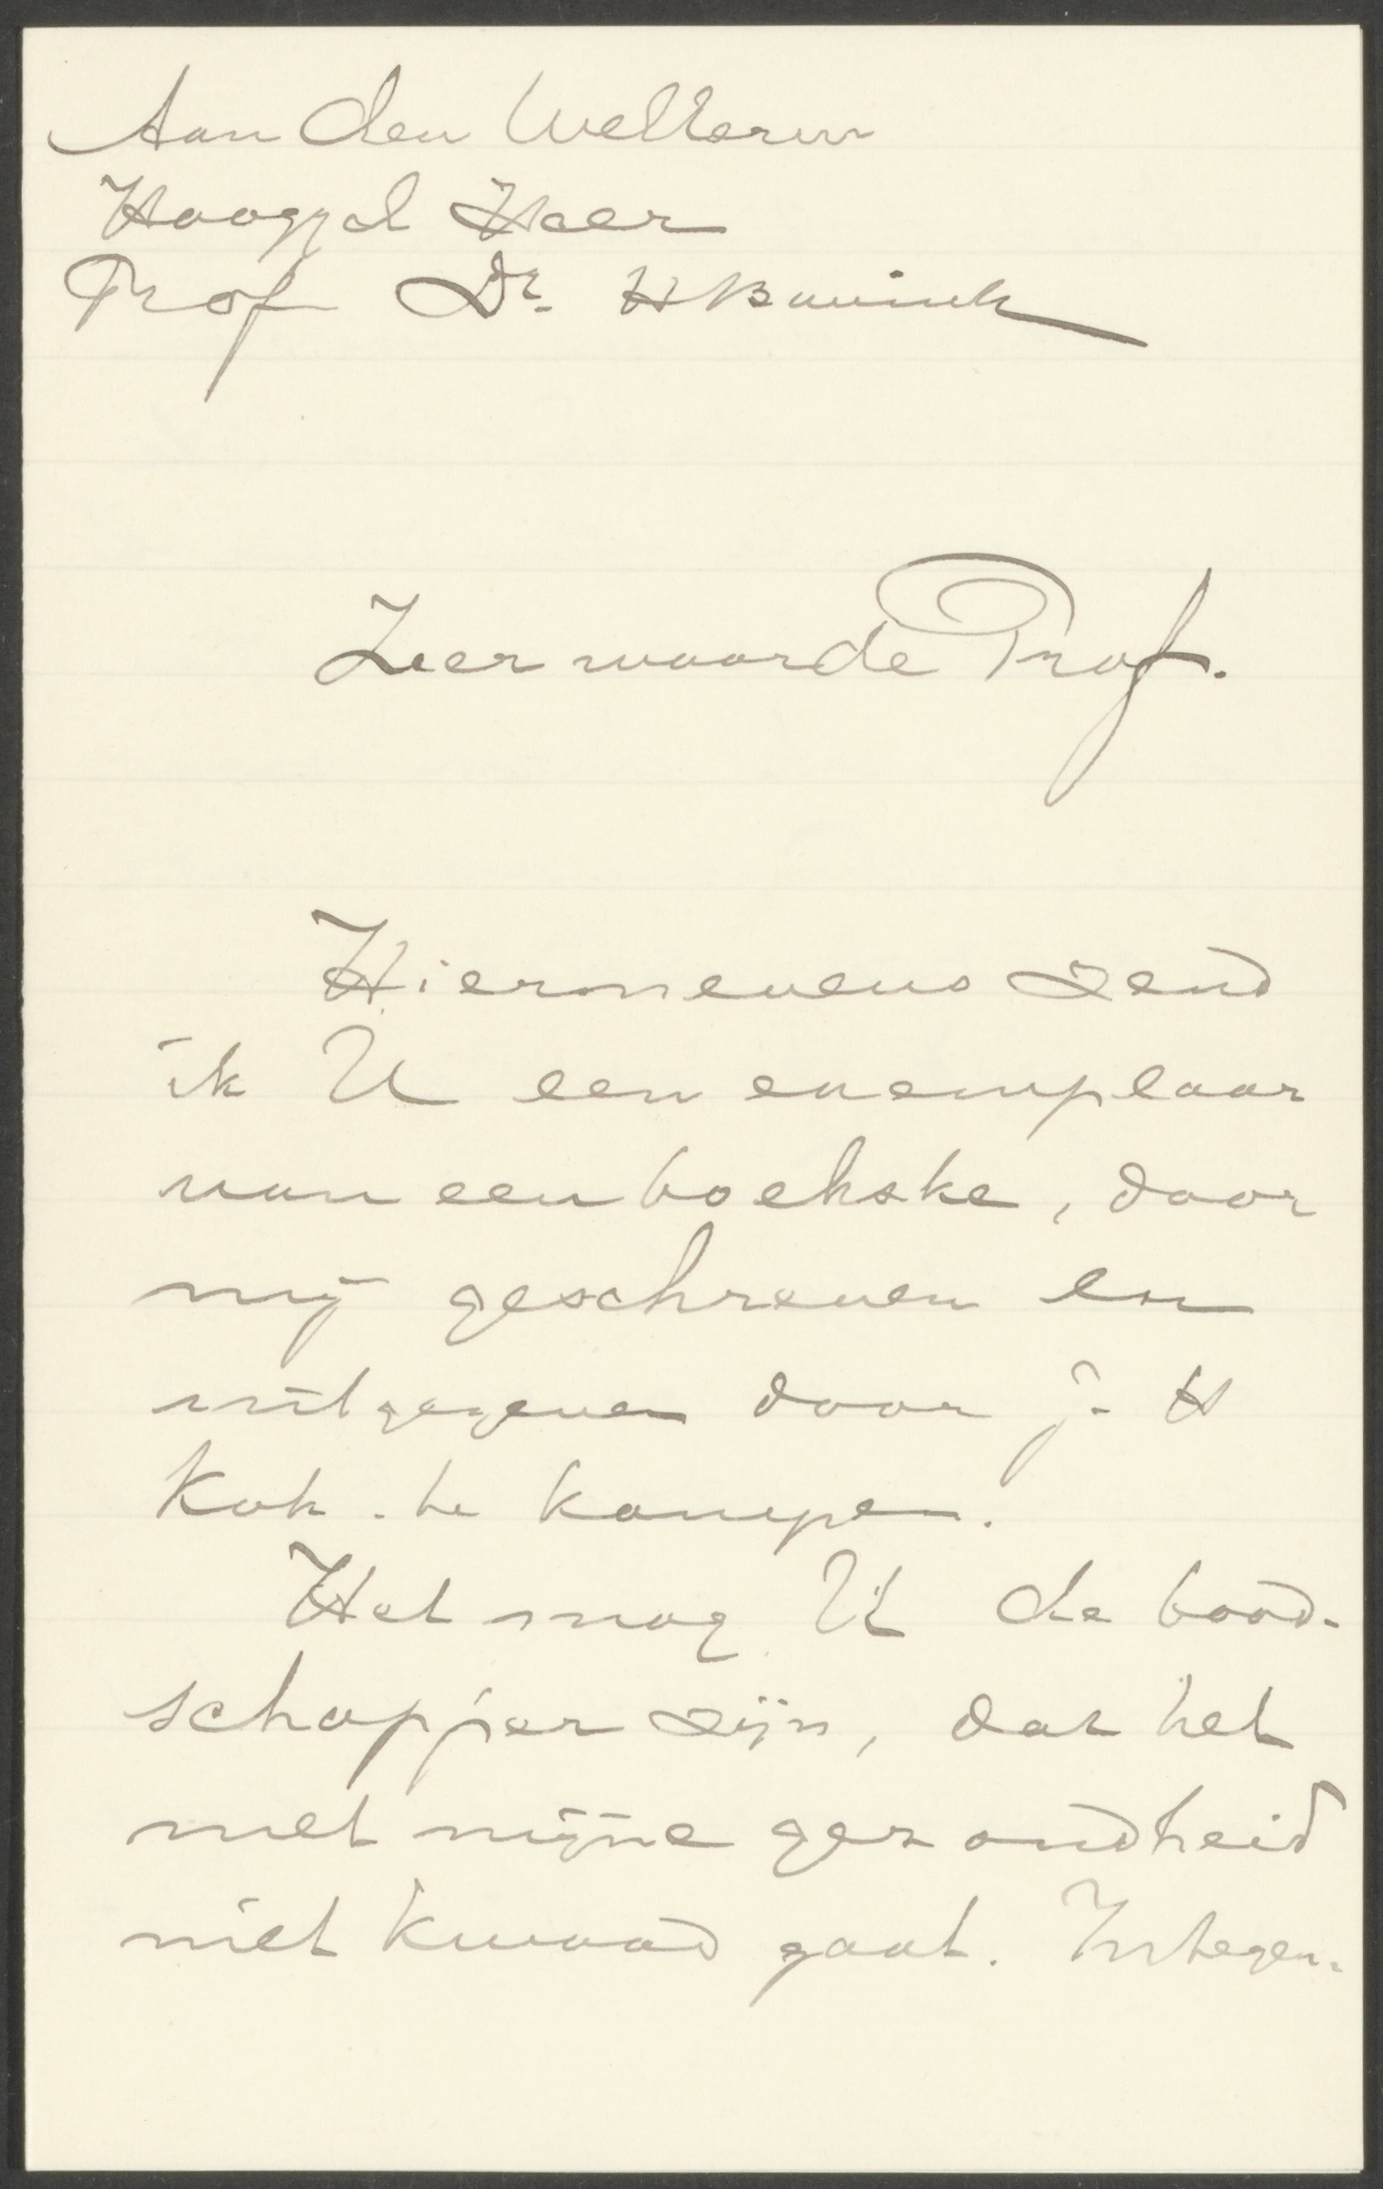 Aan den WelEerw
Hooggel Heer
Prof Dr. H Bavinck
Zeer waarde Prof.
Hiernevens zend
ik U een exemplaar
van een boekske, door
mij geschreven en
uitgegeven door J. H
Kok. te Kampen.
Het mag U de bood-
schapper zijn, dat het
met mijne gezondheid
niet kwaad gaat. Integen-